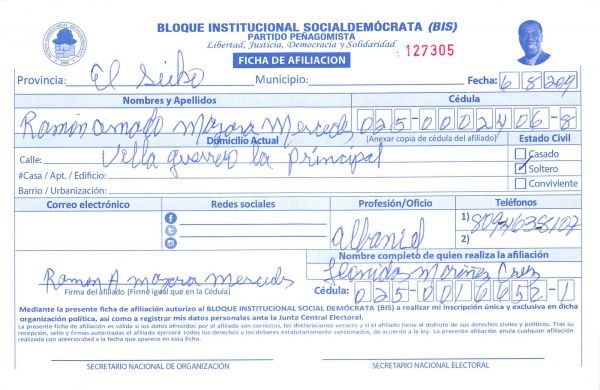 BLOQUE INSTITUCIONAL SOCIALDEMÓCRATA (BIS)
PARTIDO PEÑAGOMISTA
Libertad, Justicia, Democracia y Solidaridad
FICHA DE AFILIACION
127305
Provincia: El Seibo Municipio: Fecha: 6 8 209
Nombres y Apellidos Cédula
Ramón amado Mercedes 025-0002406-8
Domicilio Actual (Anexar copia de cédula del afiliado) Estado Civil
Calle: Villa guerrero la principal Casado
#Casa / Apt. / Edificio: Soltero
Barrio / Urbanización: Conviviente
Correo electrónico Redes sociales Profesión/Oficio Teléfonos
1)
albanil 2)
Nombre completo de quien realiza la afiliación
Ramon A Mercedes Leonida Cruz
Firma del afiliado (Firme igual que en la Cédula) Cédula: 025-0016652-1
Mediante la presente ficha de afiliación autorizo al BLOQUE INSTITUCIONAL SOCIAL DEMÓCRATA (BIS) a realizar mi inscripción única y exclusiva en dicha
organización política, así como a registrar mis datos personales ante la Junta Central Electoral.
La presente ficha de afiliación es válida si los datos ofrecidos por el afiliado son correctos, las declaraciones voraces y si el afiliado tiene el disfrute de sus derechos civiles y políticos. Tras su
recepción, sello y firmas autorizadas el afiliado ejercerá todos los derechos y los deberes estatutariamente consignados, de acuerdo a la ley. La presente afiliación anula cualquier afiliación
realizada con anterioridad a la fecha que aparece en esta ficha.
SECRETARIO NACIONAL DE ORGANIZACIÓN SECRETARIO NACIONAL ELECTORAL